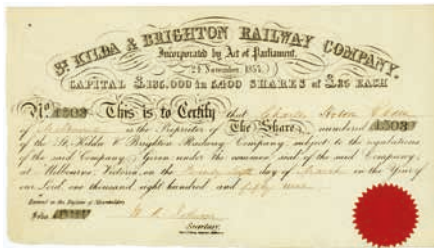 ST KILDA & BRIGHTON RAILWAY COMPANY.
Incorporated by Act of Parliament,
24 November, 1857.
CAPITAL £135,000 in 5,400 SHARES of £25 EACH
No. 1503 This is to Certify that Charles
of is the Proprietor of The Share numbered 1503
of the St. Kilda & Brighton Railway Company, subject to the regulations
of the said Company; Given under the common seal of the said Company,
at Melbourne, Victoria, on the day of March in the Year of
our Lord, one thousand eight hundred and fifty nine.
Entered in the Register of Shareholders
Folio
Secretary